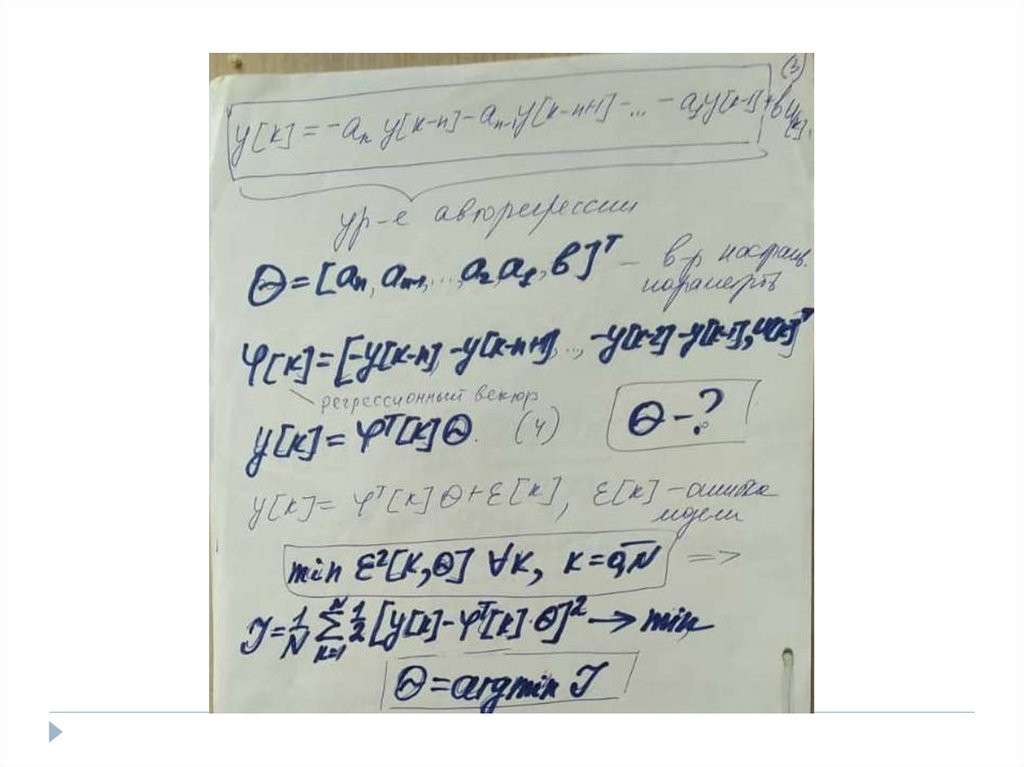 (3)
y[k] = -aₙ y[k-n] - aₙ₋₁ y[k-n+1] - ... - a₁y[k-1] + в u[k].
ур-е авторегрессии
Θ = [aₙ, aₙ₋₁, ... a₂, a₁, в]ᵀ – в-р настраив. параметр
φ[k] = [-y[k-n], -y[k-n+1], ..., -y[k-2] -y[k-1], u[k]]ᵀ
регрессионный вектор
y[k] = φᵀ[k]Θ. (4) Θ - ?
y[k] = φᵀ[k]Θ + ε[k], ε[k] – ошибка модели
min ε²[k,Θ] ∀k, k = 0,N =>
J = 1/N ∑ᴺₖ₌₁ 1/2 [y[k] - φᵀ[k]·Θ]² → min
Θ = argmin J